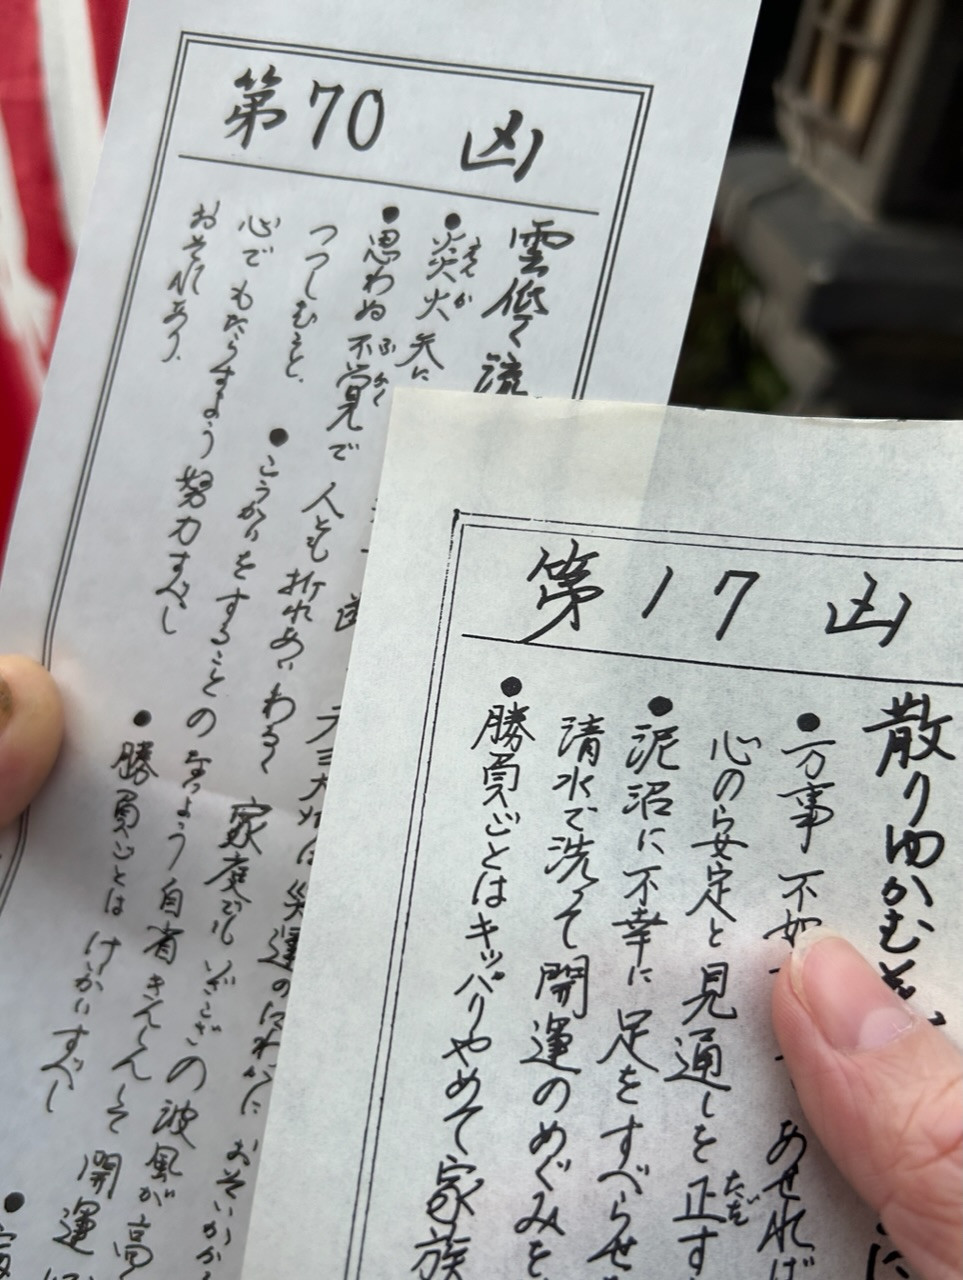 第70 凶
雲低く流
炎火 矢に
えんか
思わぬ不覚で 人とも折れあいわるく 家庭でもいざこざの波風が高
ふかく
つつしむこと。
こうかいをすることの なきよう自省きんしんして 開運
心でもたらすよう 努力すべし
おそれあり。
勝負ごとは けいかいすべし
災運の おそいかか
第17 凶
散りゆかむ
万事 不如 あせれば
心のら安定と見通しを正す
ただ
泥沼に不幸に足をすべらせ
清水で洗って開運のめぐみを
勝負ごとはキッパリやめて家族